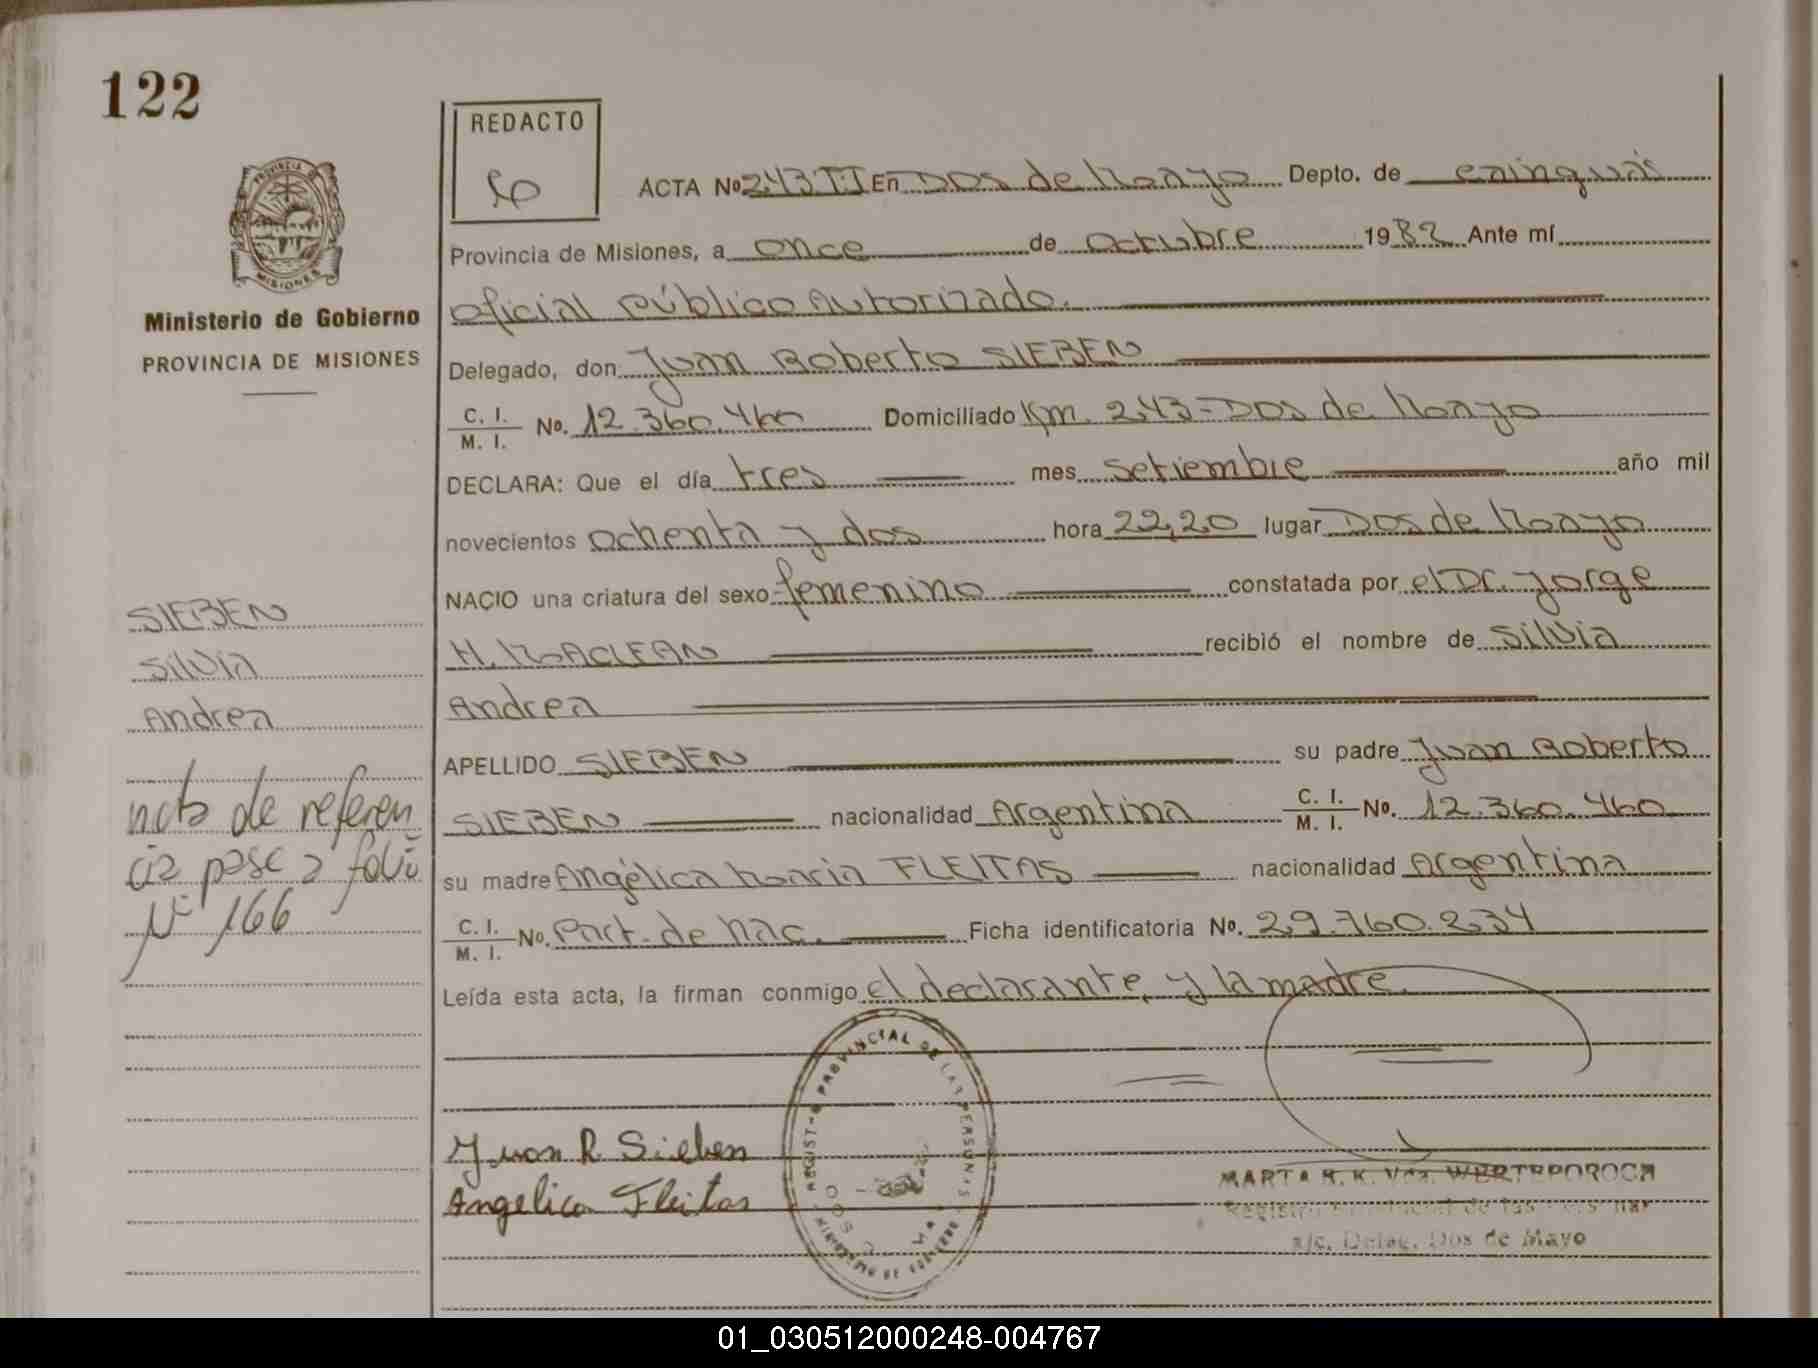 122
REDACTO
ACTA No 243 II En Dos de Mayo Depto. de Cainguás
PROVINCIA DE MISIONES
Provincia de Misiones, a once de octubre 1982 Ante mí
Oficial Público Autorizado.
Ministerio de Gobierno
PROVINCIA DE MISIONES
Delegado, don Juan Roberto SIEBEN
C. I. / M. I. No. 12.360.460 Domiciliado Km. 243 - Dos de Mayo
DECLARA: Que el día tres mes setiembre año mil
novecientos ochenta y dos hora 22,20 lugar Dos de Mayo
NACIO una criatura del sexo femenino constatada por el Dr. Jorge
H. MACLEAN recibió el nombre de Silvia
Andrea
APELLIDO SIEBEN su padre Juan Roberto
SIEBEN nacionalidad Argentina C. I. / M. I. No. 12.360.460
su madre Angélica María FLEITAS nacionalidad Argentina
C. I. / M. I. No. Part. de nac. Ficha identificatoria No. 29.760.234
Leída esta acta, la firman conmigo el declarante, y la madre.
SIEBEN
Silvia
Andrea
nota de referen
cia pase a folio
Nº 166
Juan R Sieben
Angelica Fleitas
REGIST- PROVINCIAL DE LAS PERSONAS
MARTA R. K. Vda. WERTEPOROCH
Registro Provincial de las Personas
a/c. Deleg. Dos de Mayo
01_030512000248-004767